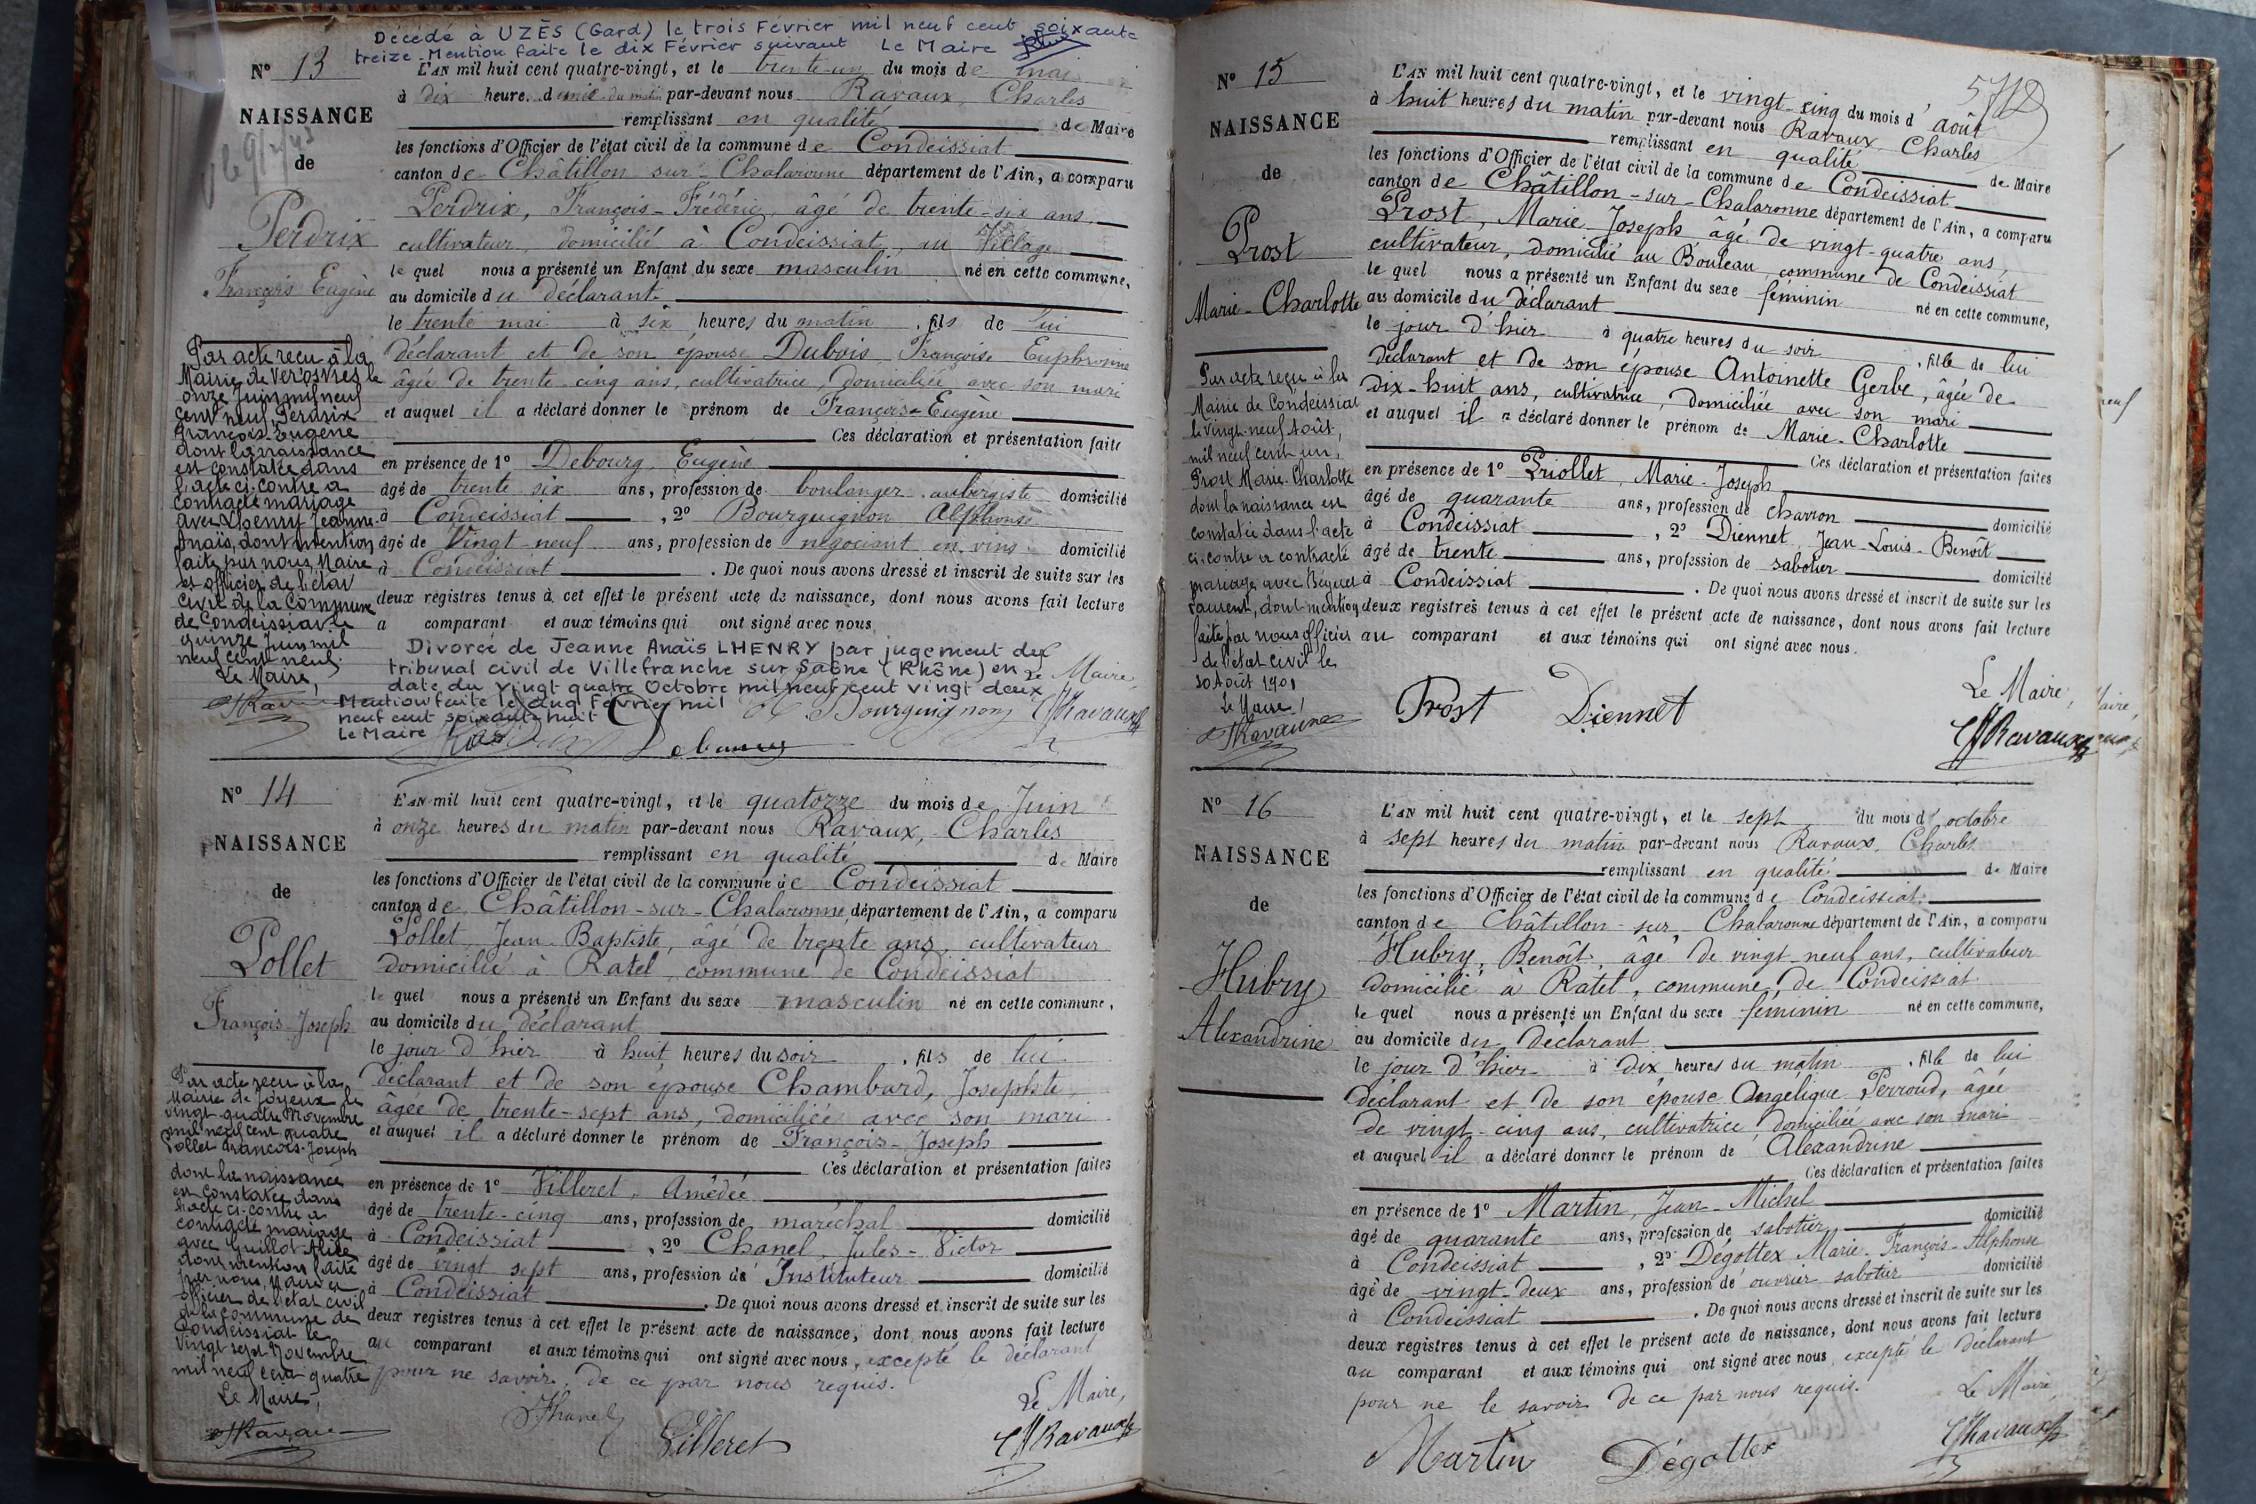 Décédé à UZÈS (Gard) le trois Février mil neuf cent soixante
treize. Mention faite le dix Février suivant Le Maire
N° 13
NAISSANCE
de
Perdrix
François Eugène
L'AN mil huit cent quatre-vingt, et le trente-un du mois de mai
à dix heure du matin par-devant nous Ravaux, Charles
remplissant en qualité de Maire
les fonctions d'Officier de l'état civil de la commune de Condeissiat
canton de Châtillon-sur-Chalaronne département de l'Ain, a comparu
Perdrix, François-Frédéric, âgé de trente-six ans,
cultivateur, domicilié à Condeissiat, au Village
le quel nous a présenté un Enfant du sexe masculin né en cette commune,
au domicile du déclarant.
le trente mai à six heures du matin, fils de lui
déclarant et de son épouse Dubois, Françoise Euphrosine
âgée de trente-cinq ans, cultivatrice, domiciliée avec son mari
et auquel il a déclaré donner le prénom de François-Eugène
Ces déclaration et présentation faite
en présence de 1° Debourg, Eugène
âgé de trente six ans, profession de boulanger aubergiste domicilié
à Condeissiat, 2° Bourguignon Alphonse
âgé de vingt-neuf ans, profession de négociant en vins domicilié
à Condeissiat. De quoi nous avons dressé et inscrit de suite sur les
deux registres tenus à cet effet le présent acte de naissance, dont nous avons fait lecture
a comparant et aux témoins qui ont signé avec nous
Par acte reçu à la
Mairie de Verosvres le
onze Juin mil neuf
cent neuf, Perdrix
François-Eugène
dont la naissance
est constatée dans
l'acte ci-contre a
contracté mariage
avec Lhenry Jeanne-
Anaïs, dont mention
faite par nous, Maire
et officier de l'état
civil de la Commune
de Condeissiat le
quinze Juin mil
neuf cent neuf.
Le Maire,
Divorcé de Jeanne Anaïs LHENRY par jugement du
tribunal civil de Villefranche sur Saône (Rhône) en
date du vingt quatre Octobre mil neuf cent vingt deux
Mention faite le cinq Février mil
neuf cent soixante huit
Le Maire
Le Maire,
Bourguignon Ravaux
Debourg
N° 14
NAISSANCE
de
Pollet
François-Joseph
L'AN mil huit cent quatre-vingt, et le quatorze du mois de Juin
à onze heures du matin par-devant nous Ravaux, Charles
remplissant en qualité de Maire
les fonctions d'Officier de l'état civil de la commune de Condeissiat
canton de Châtillon-sur-Chalaronne département de l'Ain, a comparu
Pollet, Jean-Baptiste, âgé de trente ans, cultivateur
domicilié à Ratel, commune de Condeissiat
le quel nous a présenté un Enfant du sexe masculin né en cette commune,
au domicile du déclarant
le jour d'hier à huit heures du soir, fils de lui
déclarant et de son épouse Chambard, Josephte,
âgée de trente-sept ans, domiciliée avec son mari
et auquel il a déclaré donner le prénom de François-Joseph
Ces déclaration et présentation faites
en présence de 1° Villeret, Amédée
âgé de trente-cinq ans, profession de maréchal domicilié
à Condeissiat, 2° Chanel, Jules-Victor
âgé de vingt sept ans, profession de Instituteur domicilié
à Condeissiat. De quoi nous avons dressé et inscrit de suite sur les
deux registres tenus à cet effet le présent acte de naissance, dont nous avons fait lecture
au comparant et aux témoins qui ont signé avec nous, excepté le déclarant
pour ne savoir, de ce par nous requis.
Par acte reçu à la
Mairie de Joyeux le
vingt-quatre Novembre
mil neuf cent quatre
Pollet François-Joseph
dont la naissance
est constatée dans
l'acte ci-contre a
contracté mariage
avec Guillot Alice
dont mention faite
par nous, Maire et
officier de l'état civil
de la commune de
Condeissiat le
Vingt-sept Novembre
mil neuf cent quatre
Le Maire,
Le Maire,
Chanel Villeret Ravaux
N° 15
NAISSANCE
de
Prost
Marie-Charlotte
L'AN mil huit cent quatre-vingt, et le vingt-cinq du mois d'août
à huit heures du matin par-devant nous Ravaux, Charles
remplissant en qualité de Maire
les fonctions d'Officier de l'état civil de la commune de Condeissiat
canton de Châtillon-sur-Chalaronne département de l'Ain, a comparu
Prost, Marie-Joseph âgé de vingt-quatre ans,
cultivateur, domicilié au Bouleau, commune de Condeissiat
le quel nous a présenté un Enfant du sexe féminin né en cette commune,
au domicile du déclarant
le jour d'hier à quatre heures du soir, fille de lui
déclarant et de son épouse Antoinette Gerbe, âgée de
dix-huit ans, cultivatrice, domiciliée avec son mari
et auquel il a déclaré donner le prénom de Marie-Charlotte
Ces déclaration et présentation faites
en présence de 1° Priollet, Marie-Joseph
âgé de quarante ans, profession de charron domicilié
à Condeissiat, 2° Diennet, Jean-Louis-Benoît
âgé de trente ans, profession de sabotier domicilié
à Condeissiat. De quoi nous avons dressé et inscrit de suite sur les
deux registres tenus à cet effet le présent acte de naissance, dont nous avons fait lecture
au comparant et aux témoins qui ont signé avec nous.
Par acte reçu à la
Mairie de Condeissiat
le vingt-neuf Août,
mil neuf cent un,
Prost Marie-Charlotte
dont la naissance est
constatée dans l'acte
ci-contre a contracté
mariage avec Béguet
Laurent, dont mention
faite par nous officier
de l'état civil le
30 Août 1901
Le Maire,
Le Maire,
Prost Diennet Ravaux
N° 16
NAISSANCE
de
Hubry
Alexandrine
L'AN mil huit cent quatre-vingt, et le sept du mois d'octobre
à sept heures du matin par-devant nous Ravaux, Charles
remplissant en qualité de Maire
les fonctions d'Officier de l'état civil de la commune de Condeissiat
canton de Châtillon-sur-Chalaronne département de l'Ain, a comparu
Hubry, Benoît, âgé de vingt-neuf ans, cultivateur
domicilié à Ratel, commune de Condeissiat
le quel nous a présenté un Enfant du sexe féminin né en cette commune,
au domicile du déclarant
le jour d'hier à dix heures du matin, fille de lui
déclarant et de son épouse Angélique Perroud, âgée
de vingt-cinq ans, cultivatrice, domiciliée avec son mari
et auquel il a déclaré donner le prénom de Alexandrine
Ces déclaration et présentation faites
en présence de 1° Martin, Jean-Michel
âgé de quarante ans, profession de sabotier domicilié
à Condeissiat, 2° Dégottex Marie-François-Alphonse
âgé de vingt-deux ans, profession de ouvrier sabotier domicilié
à Condeissiat. De quoi nous avons dressé et inscrit de suite sur les
deux registres tenus à cet effet le présent acte de naissance, dont nous avons fait lecture
au comparant et aux témoins qui ont signé avec nous, excepté le déclarant
pour ne le savoir de ce par nous requis.
Le Maire
Martin Dégottex Ravaux